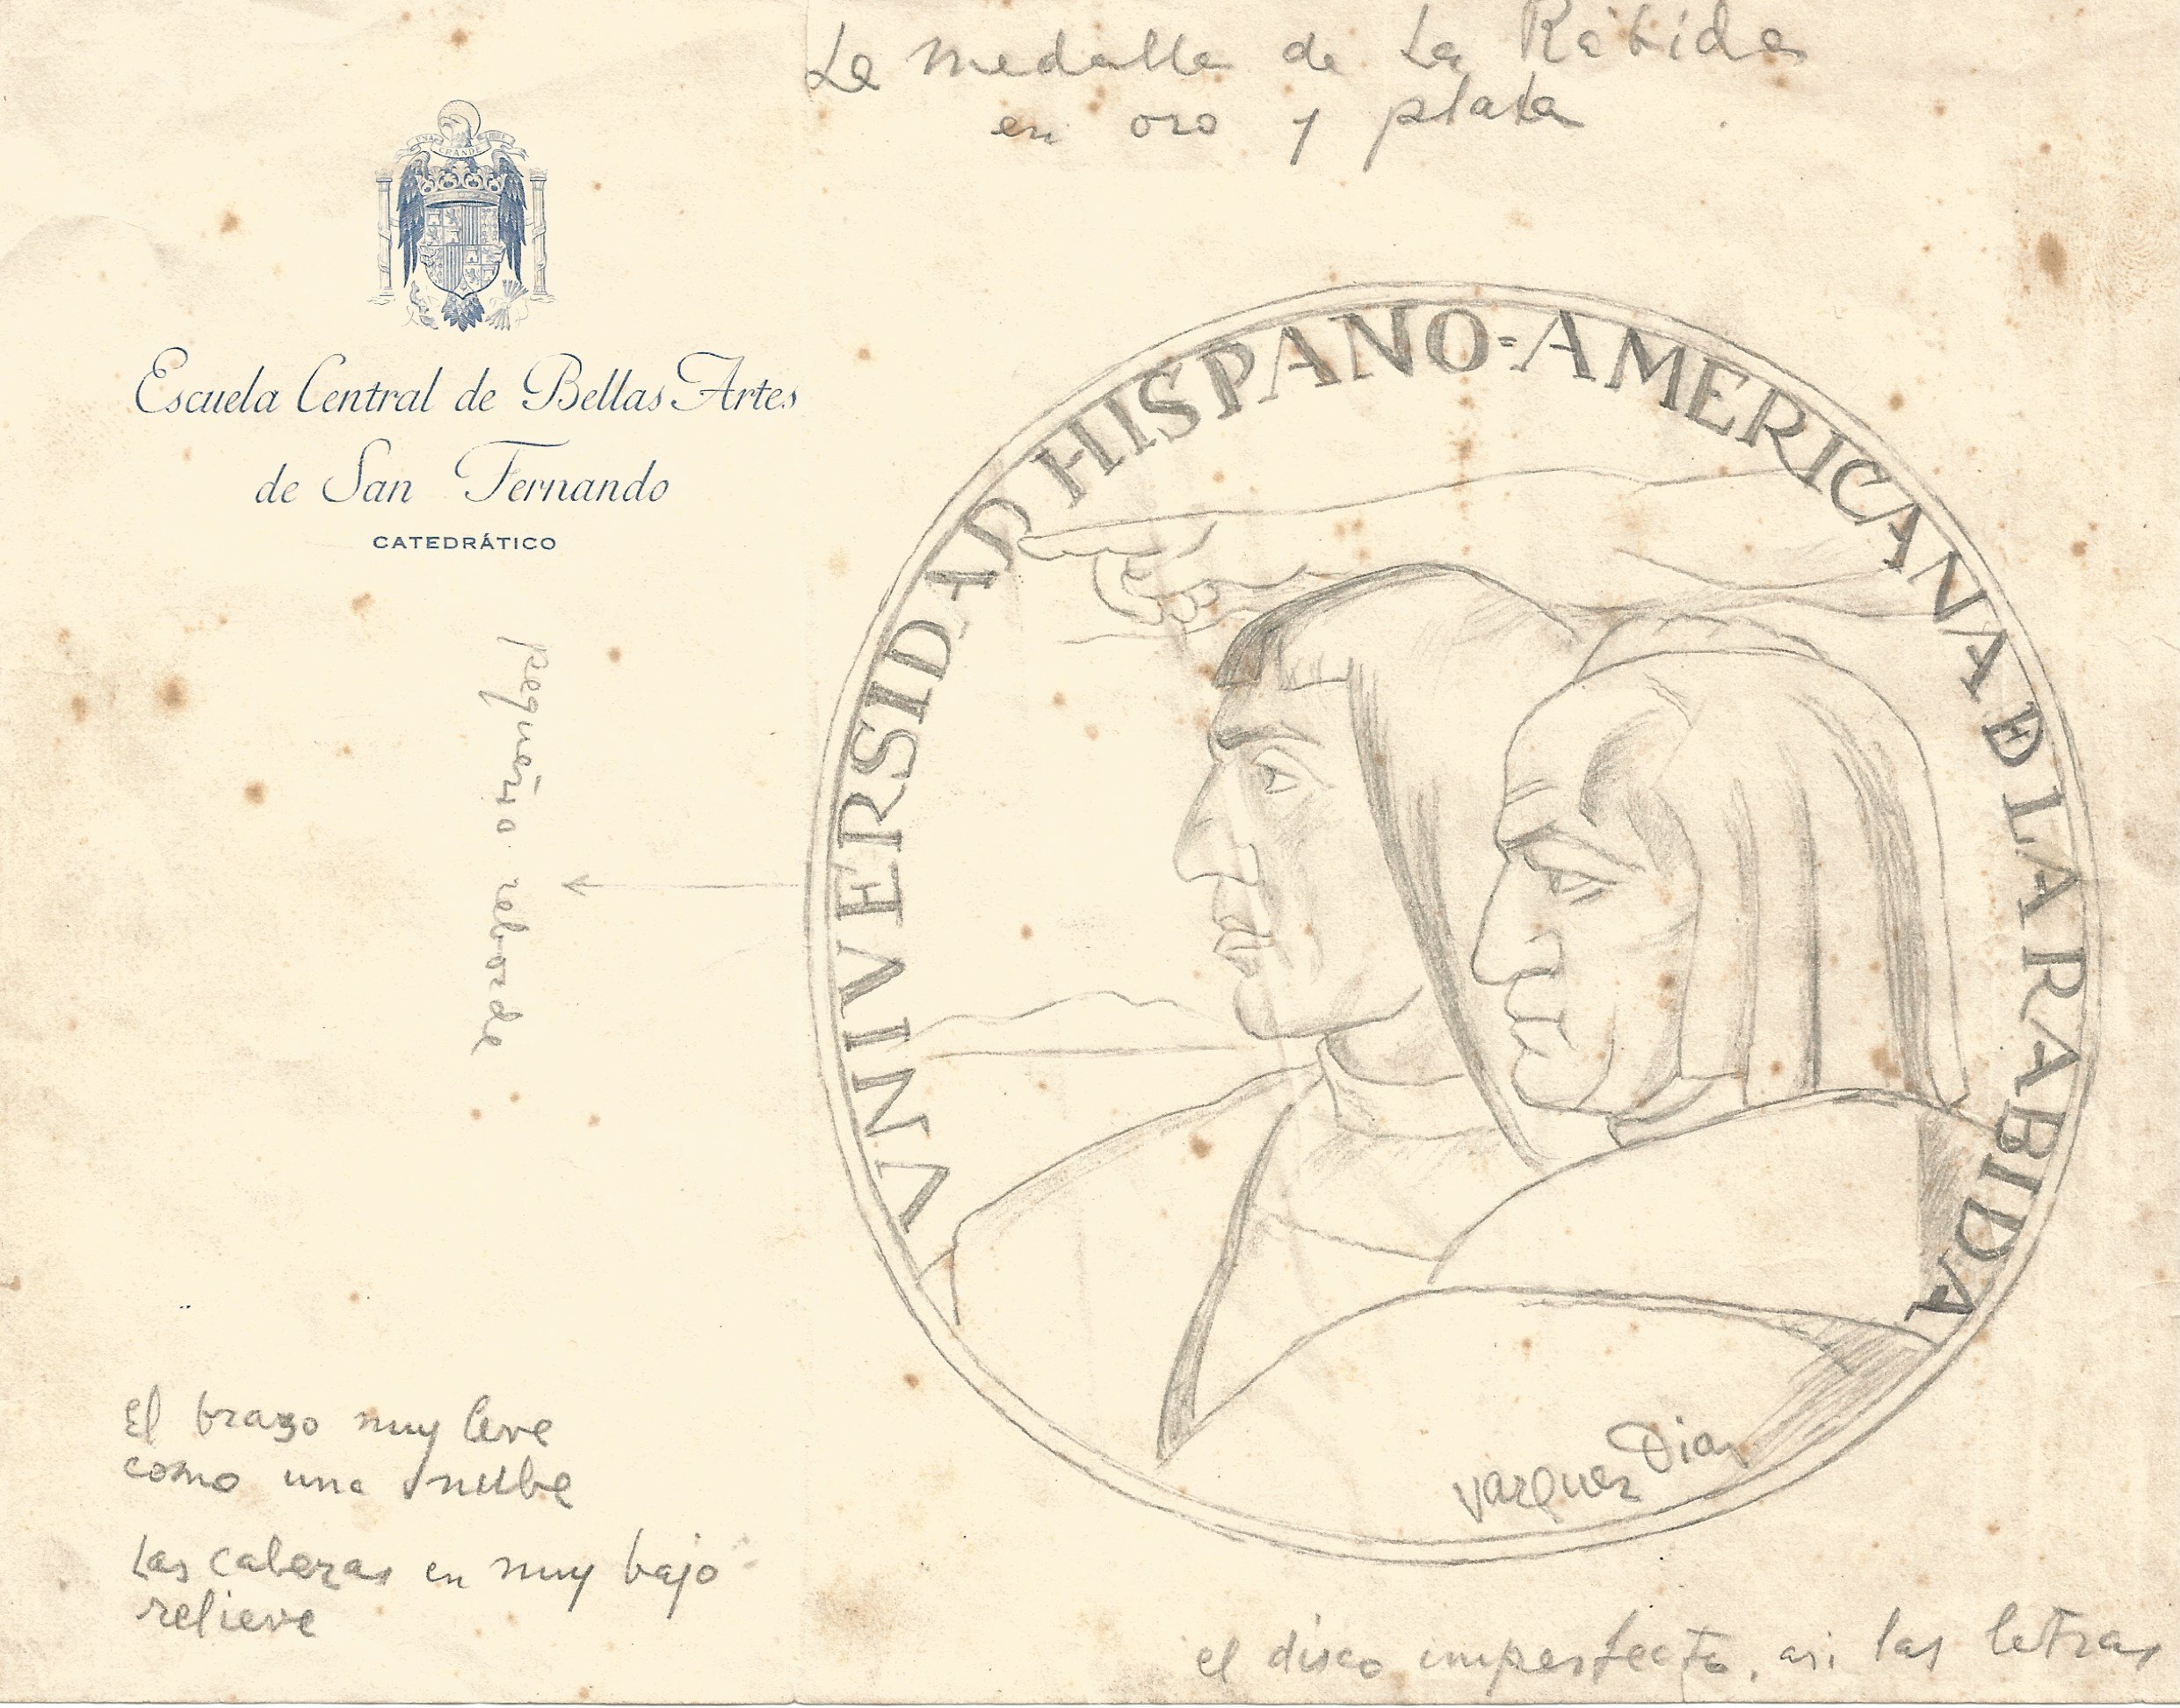 La medalla de La Rábida
en oro y plata
UNA
GRANDE
LIBRE
Escuela Central de Bellas Artes
de San Fernando
CATEDRÁTICO
VNIVERSIDAD HISPANO-AMERICANA D LA RABIDA
pequeño reborde
El brazo muy leve
como una nube
Las cabezas en muy bajo
relieve
Vazquez Diaz
el disco imperfecto, asi las letras